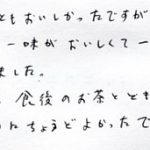 ともおいしかったですが
一味がおいしくて一
ました。
、食後のお茶ととも
にちょうどよかったで